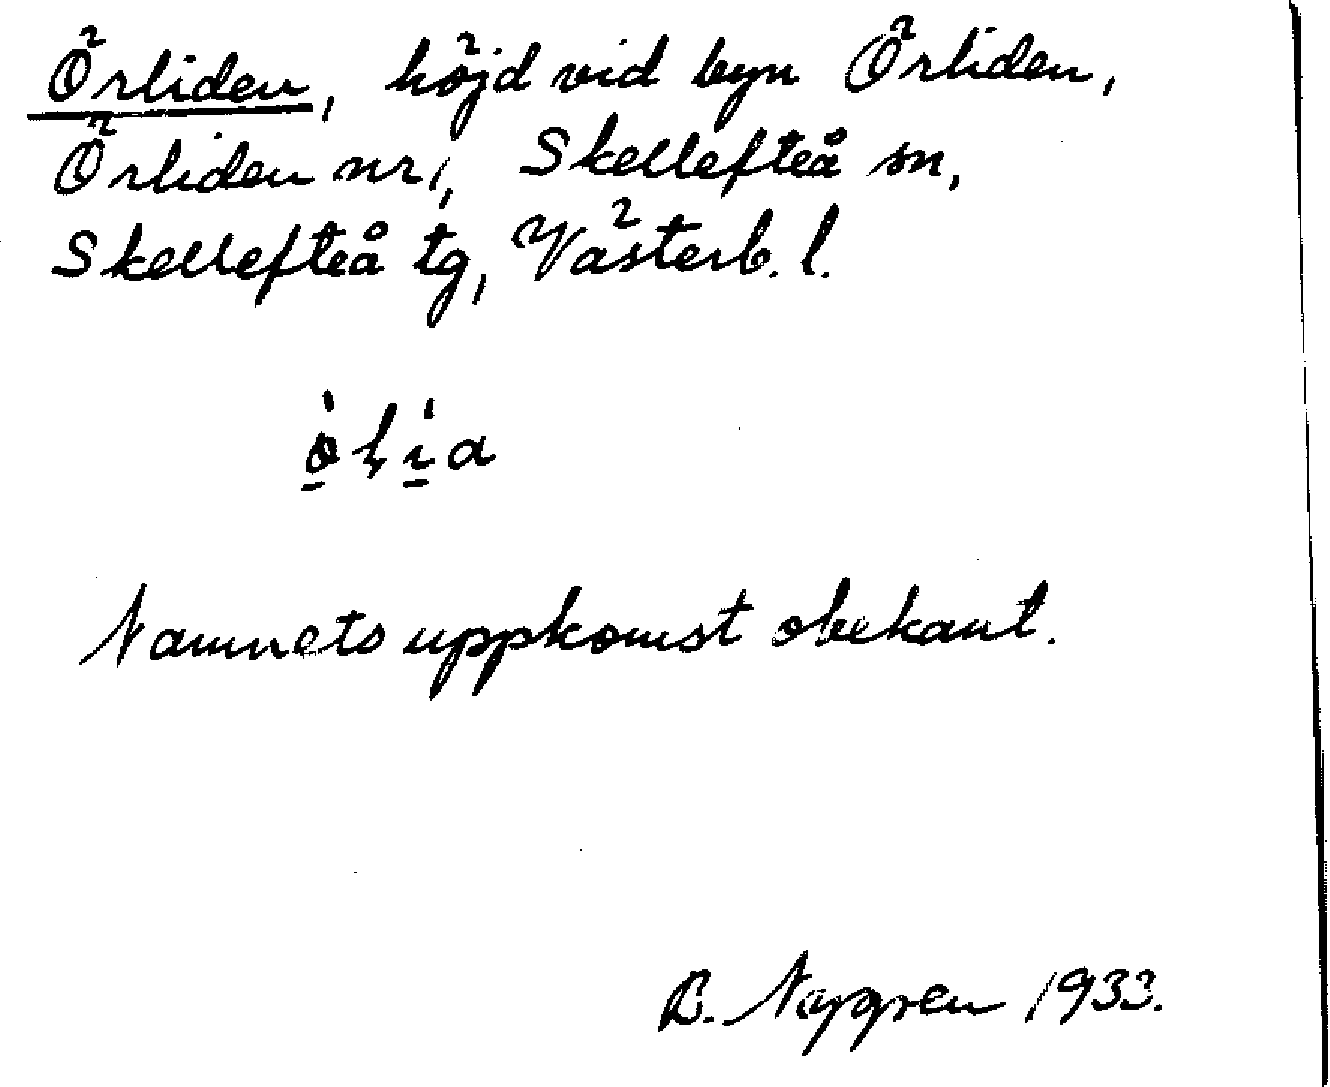 Örliden, höjd vid byn Örliden,
Örliden nr 1, Skellefteå sn,
Skellefteå tg, Västerb. l.
Namnets uppkomst obekant.
B. 1933.